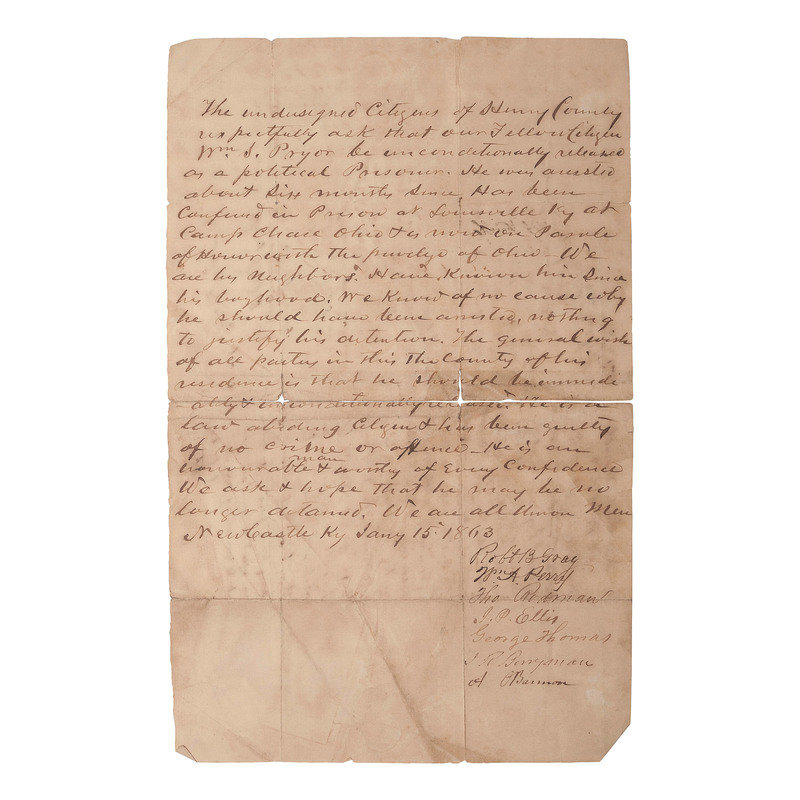 The undersigned Citizens of Henry County
respectfully ask that our Fellow Citizen
Wm. S. Pryor be unconditionally released
as a political Prisoner. He was arrested
about Six months Since Has been
Confined in Prison at Louisville Ky at
Camp Chase Ohio & is now on Parole
of Honor with the privilege of Ohio – We
are his Neighbors. Have Known him Since
his boyhood. We Know of no cause why
he should have been arrested, nothing
to justify his detention. The general wish
of all parties in this The County of his
residence is that he should be immedi
ably & unconditionally released. He is a
Law abiding Citizen & has been guilty
of no crime or offence – He is an
honourable man & worthy of Every Confidence
We ask & hope that he may be no
longer detained. We are all Union Men
NewCastle Ky Jany 15 1863
Robt B Gray
Wm A. Perry
Tho
J. P. Ellis
George Thomas
J R Berryman
A